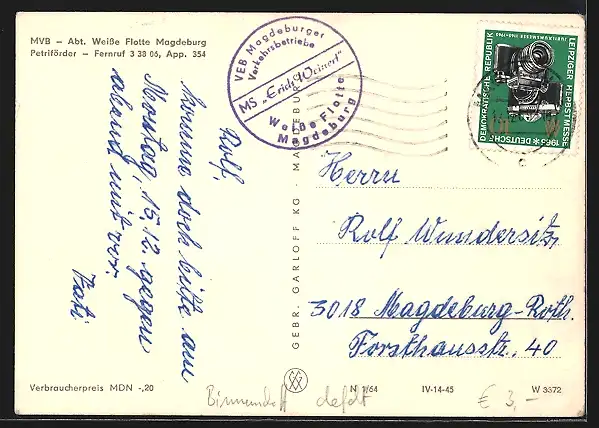 MVB – Abt. Weiße Flotte Magdeburg
Petriförder – Fernruf 3 38 06, App. 354
Rolf,
komme doch bitte am
Montag, 15.12. gegen
abend mit vor.
Vati
Verbraucherpreis MDN -,20
VEB Magdeburger
Verkehrsbetriebe
MS „Erich Weinert"
Weiße Flotte
Magdeburg
GEBR. GARLOFF KG · MAGDEBURG
LEIPZIGER HERBSTMESSE
JUBILÄUMSMESSE
1965 ★ DEUTSCHE
DEMOKRATISCHE REPUBLIK
Herrn
Rolf Wundersitz
3018 Magdeburg-Roth.
Forsthausstr. 40
N 1/64
IV-14-45
W 3372
defekt
€ 3,–